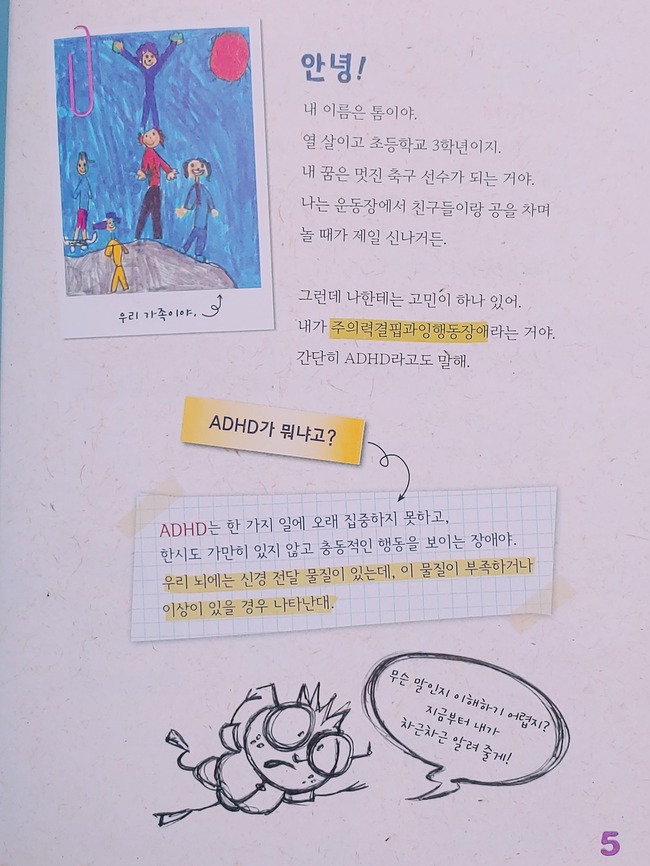 안녕!
내 이름은 톰이야.
열 살이고 초등학교 3학년이지.
내 꿈은 멋진 축구 선수가 되는 거야.
나는 운동장에서 친구들이랑 공을 차며
놀 때가 제일 신나거든.
우리 가족이야.
그런데 나한테는 고민이 하나 있어.
내가 주의력결핍과잉행동장애라는 거야.
간단히 ADHD라고도 말해.
ADHD가 뭐냐고?
ADHD는 한 가지 일에 오래 집중하지 못하고,
한시도 가만히 있지 않고 충동적인 행동을 보이는 장애야.
우리 뇌에는 신경 전달 물질이 있는데, 이 물질이 부족하거나
이상이 있을 경우 나타난대.
무슨 말인지 이해하기 어렵지?
지금부터 내가
차근차근 알려 줄게!
5